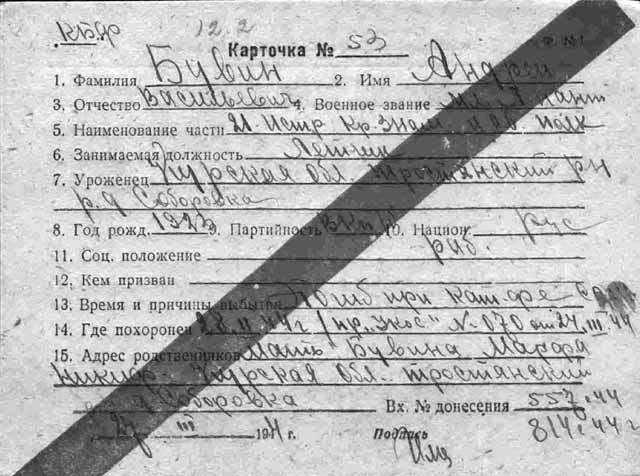 КБФ 12.2
Карточка № 53
1. Фамилия Бувин 2. Имя Андрей
3. Отчество Васильевич 4. Военное звание мл. л-нант
5. Наименование части 21. Истр. Кр. Знам. Ав. полк
6. Занимаемая должность Летчик
7. Уроженец Курская обл. Тростянский р-н
д. Соборовка
8. Год рожд. 1923 9. Партийность 10. Национ. рус
11. Соц. положение раб.
12. Кем призван
13. Время и причины выбытия Погиб при кат-фе
14. Где похоронен 44 г / пр. № 070 от 24. III. 44
15. Адрес родственников Мать Бувина
Курская обл. Тростянский
д. Соборовка Вх. № донесения 557.44
27 III 1944 г. Подпись 814.44 г